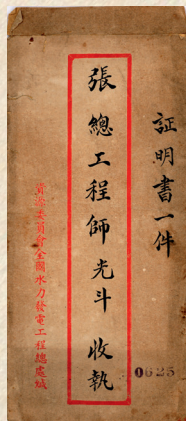 証明書一件
張總工程師光斗 收執
資源委員會全國水力發電工程總處緘
0625